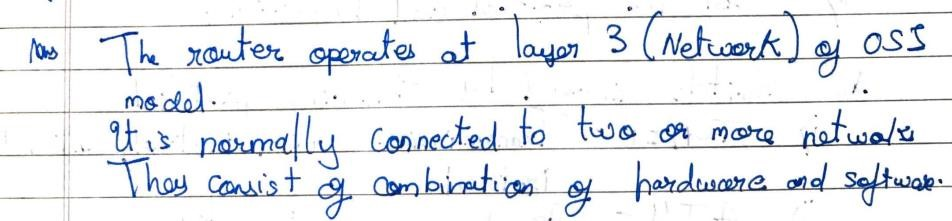 Ans The router operates at layer 3 (Network) of OSI
model.
It is normally connected to two or more networks
They consist of combination of hardware and software.